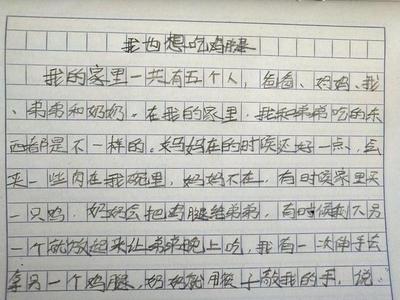 我也想吃鸡腿
我的家里一共有五个人，爸爸、妈妈、我
、弟弟和奶奶。在我的家里，我和弟弟吃的东
西都是不一样的。妈妈在的时候还好一点，会
夹一些肉在我碗里，妈妈不在，有时候家里买
一只鸡，奶奶会把鸡腿给弟弟，有时候剩下另
一个就放起来让弟弟晚上吃，我有一次伸手去
拿另一个鸡腿，奶奶就用筷子敲我的手，说